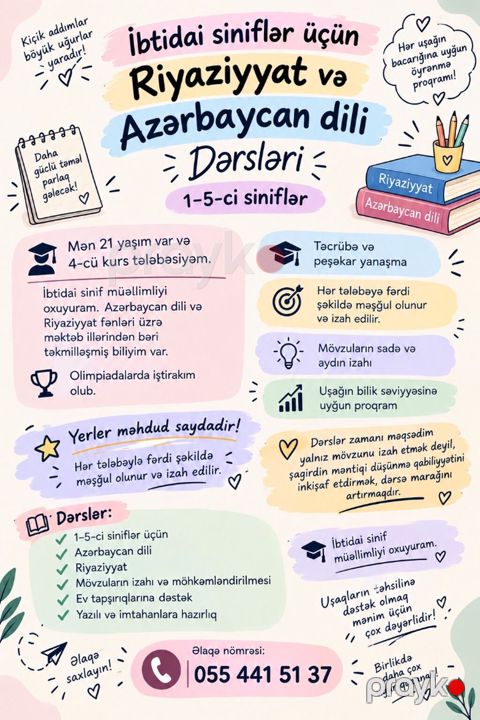 Kiçik addımlar
böyük uğurlar
yaradır!
İbtidai siniflər üçün
Riyaziyyat və
Azərbaycan dili
Dərsləri
1-5-ci siniflər
Hər uşağın
bacarığına uyğun
öyrənmə
proqramı!
Daha
güclü təməl
parlaq
gələcək!
Riyaziyyat
Azərbaycan dili
Mən 21 yaşım var və
4-cü kurs tələbəsiyəm.
İbtidai sinif müəllimliyi
oxuyuram. Azərbaycan dili və
Riyaziyyat fənləri üzrə
məktəb illərindən bəri
təkmilləşmiş biliyim var.
Olimpiadalarda iştirakım
olub.
Təcrübə və
peşəkar yanaşma
Hər tələbəyə fərdi
şəkildə məşğul olunur
və izah edilir.
Mövzuların sadə və
aydın izahı
Uşağın bilik səviyyəsinə
uyğun proqram
Yerlər məhdud saydadir!
Hər tələbəylə fərdi şəkildə
məşğul olunur və izah edilir.
Dərslər zamanı məqsədim
yalnız mövzunu izah etmək deyil,
şagirdin məntiqi düşünmə qabiliyyətini
inkişaf etdirmək, dərsə marağını
artırmaqdır.
Dərslər:
1-5-ci siniflər üçün
Azərbaycan dili
Riyaziyyat
Mövzuların izahı və möhkəmləndirilməsi
Ev tapşırıqlarına dəstək
Yazılı və imtahanlara hazırlıq
İbtidai sinif
müəllimliyi oxuyuram.
Uşaqların təhsilinə
dəstək olmaq
mənim üçün
çox dəyərlidir!
Əlaqə
saxlayın!
Əlaqə nömrəsi:
055 441 51 37
Birlikdə
daha çox